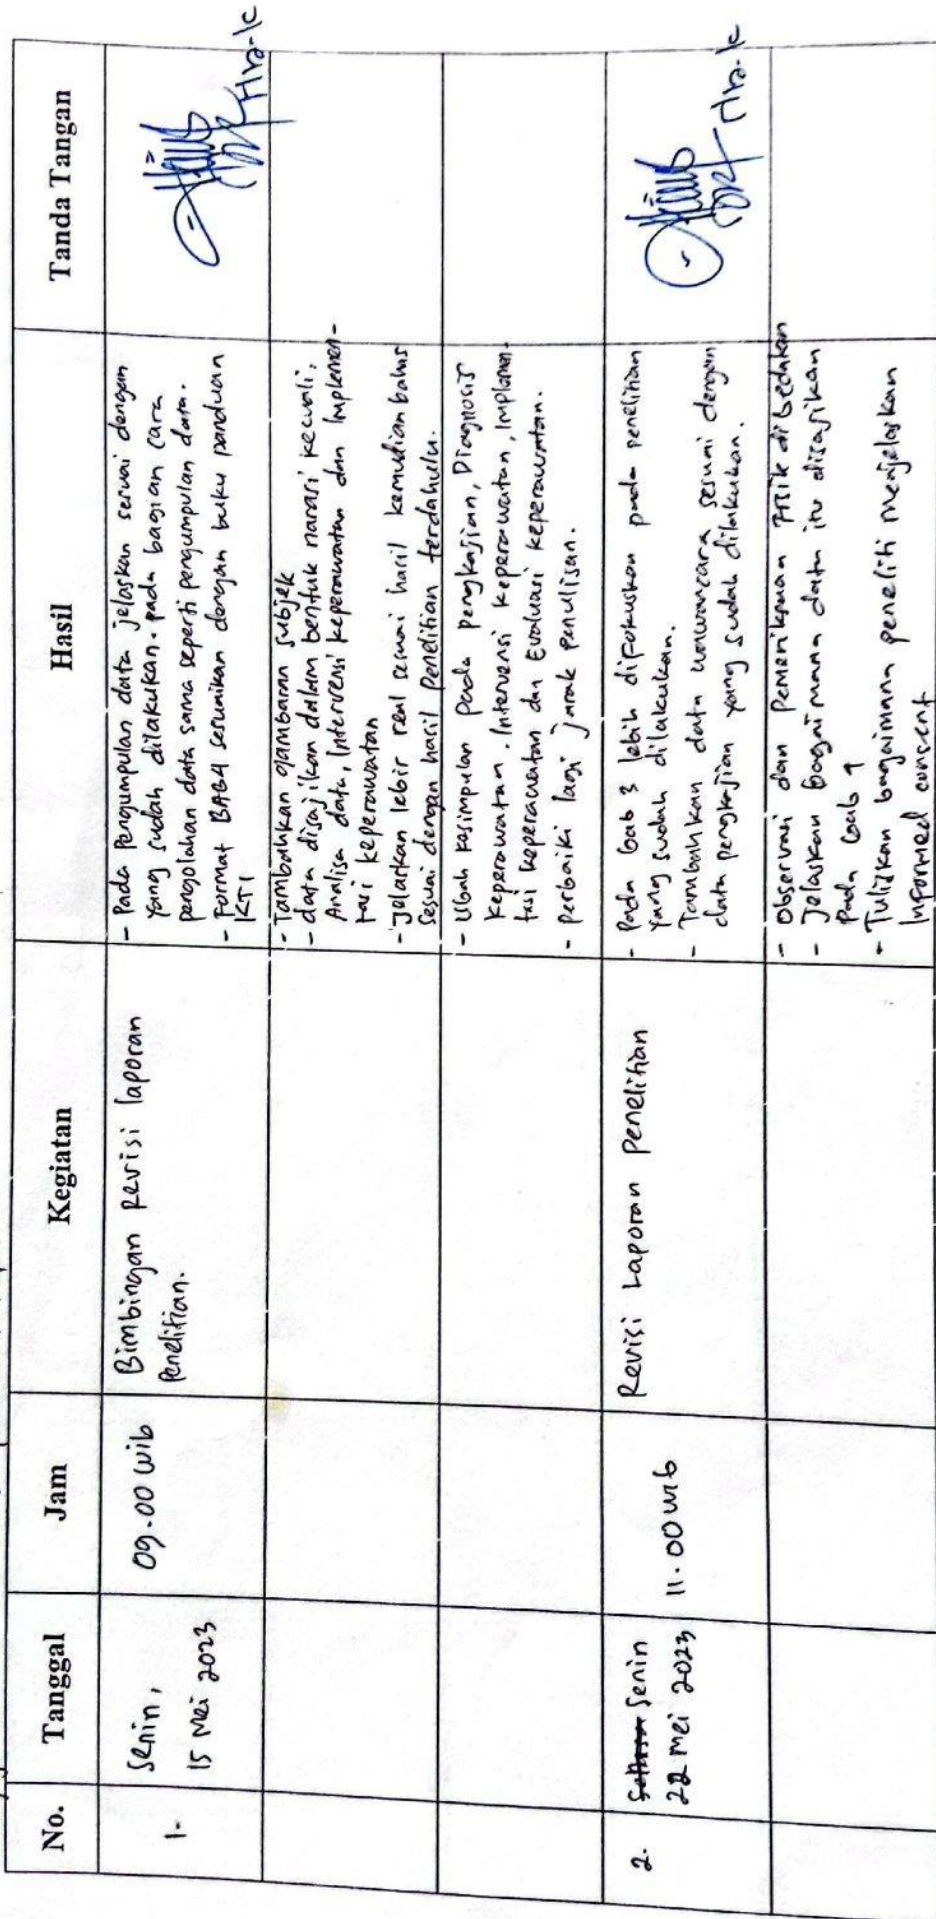 No. Tanggal Jam Kegiatan Hasil Tanda Tangan
1. Senin,
15 Mei 2023
09.00 wib
Bimbingan Revisi laporan
Penelitian.
- Pada Pengumpulan data jelaskan sesuai dengan
yang sudah dilakukan. pada bagian cara
pengolahan data sama seperti pengumpulan data.
- Format BAB4 sesuaikan dengan buku panduan
KTI
- Tambahkan gambaran subjek
- data disajikan dalam bentuk narasi kecuali,
Analisa data, Intervensi keperawatan dan Implemen-
tasi keperawatan
- Jelaskan lebir real sesuai hasil kemudian bahas
sesuai dengan hasil penelitian terdahulu.
- Ubah kesimpulan pada pengkajian, Diagnosis
Keperawatan. Intervensi keperawatan, Implemen-
tasi keperawatan dan Evaluasi keperawatan.
- perbaiki lagi jarak penulisan.
2. Senin
22 Mei 2023
11.00 wib
Revisi Laporan Penelitian
- Pada bab 3 lebih difokuskan pada penelitian
yang sudah dilakukan.
- Tambahkan data wawancara sesuai dengan
data pengkajian yang sudah dilakukan.
- Observasi dan pemeriksaan Fisik dibedakan
- Jelaskan bagaimana data itu disajikan
pada bab
- Tuliskan bagaimana peneliti menjelaskan
Informed consent